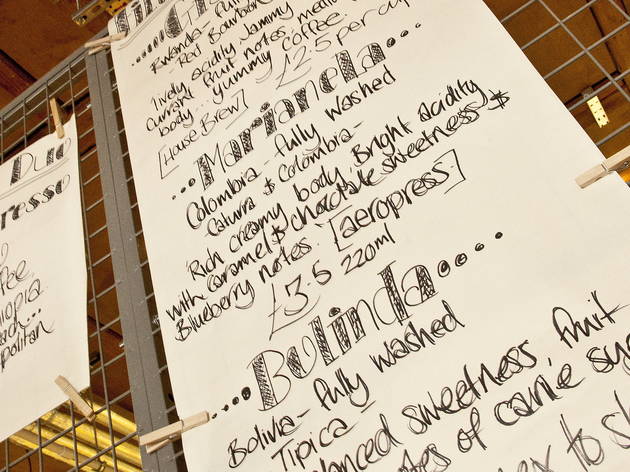 Rwanda - Fully
Red Bourbon
lively acidity Jammy
currant fruit notes, medium
body... yummy coffee
[House Brew] £2.5 per cup
...Marianela...
Colombia - fully washed
Caturra & Colombia -
Rich creamy body, Bright acidity
with caramel & chocolate sweetness &
Blueberry notes. [aeropress]
£3.5 220ml
...Bolinda....
Bolivia - fully washed
Tipica -
balanced sweetness, fruit
notes of cane
to
Duo
presso